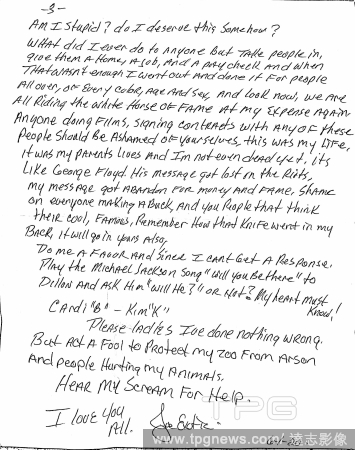 -3-
Am I stupid? do I deserve this somehow?
What did I ever do to anyone but take people in,
give them a home, a job, and a pay check and when
that wasn't enough I went out and done it for people
all over, of every color, age and sex, and look now, we are
all riding the white horse of fame at my expense again
Anyone doing films, signing contracts with any of these
people should be ashamed of yourselves, this was my life,
it was my parents lives and I'm not even dead yet, its
like George Floyd. His message got lost on the riots,
my message got abandon for money and fame, shame
on everyone making a buck, and you people that think
their cool, famous, remember how that knife went in my
back, it will go in yours also,
Do me a favor and since I cant get a response.
Play the Michael Jackson song "will you be there" to
Dillon and ask him "will He?" or not? My heart must
know!
Cardi "B" - Kim "K"
Please ladies I've done nothing wrong.
But act a fool to protect my zoo from arson
and people hurting my animals.
Hear my scream for help.
I love you
all.
TPG
www.tpgnews.com/達志影像